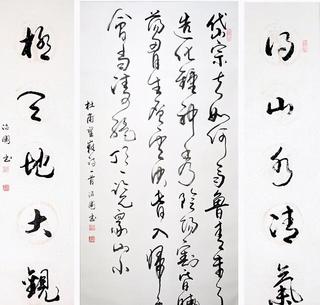 得山水清氣
岱宗夫如何齊魯青未了
造化鍾神秀陰陽割昏曉
蕩胸生層雲決眥入歸鳥
會當凌絕頂一覽衆山小
杜甫望嶽詩一首治國書
極天地大觀
治國書